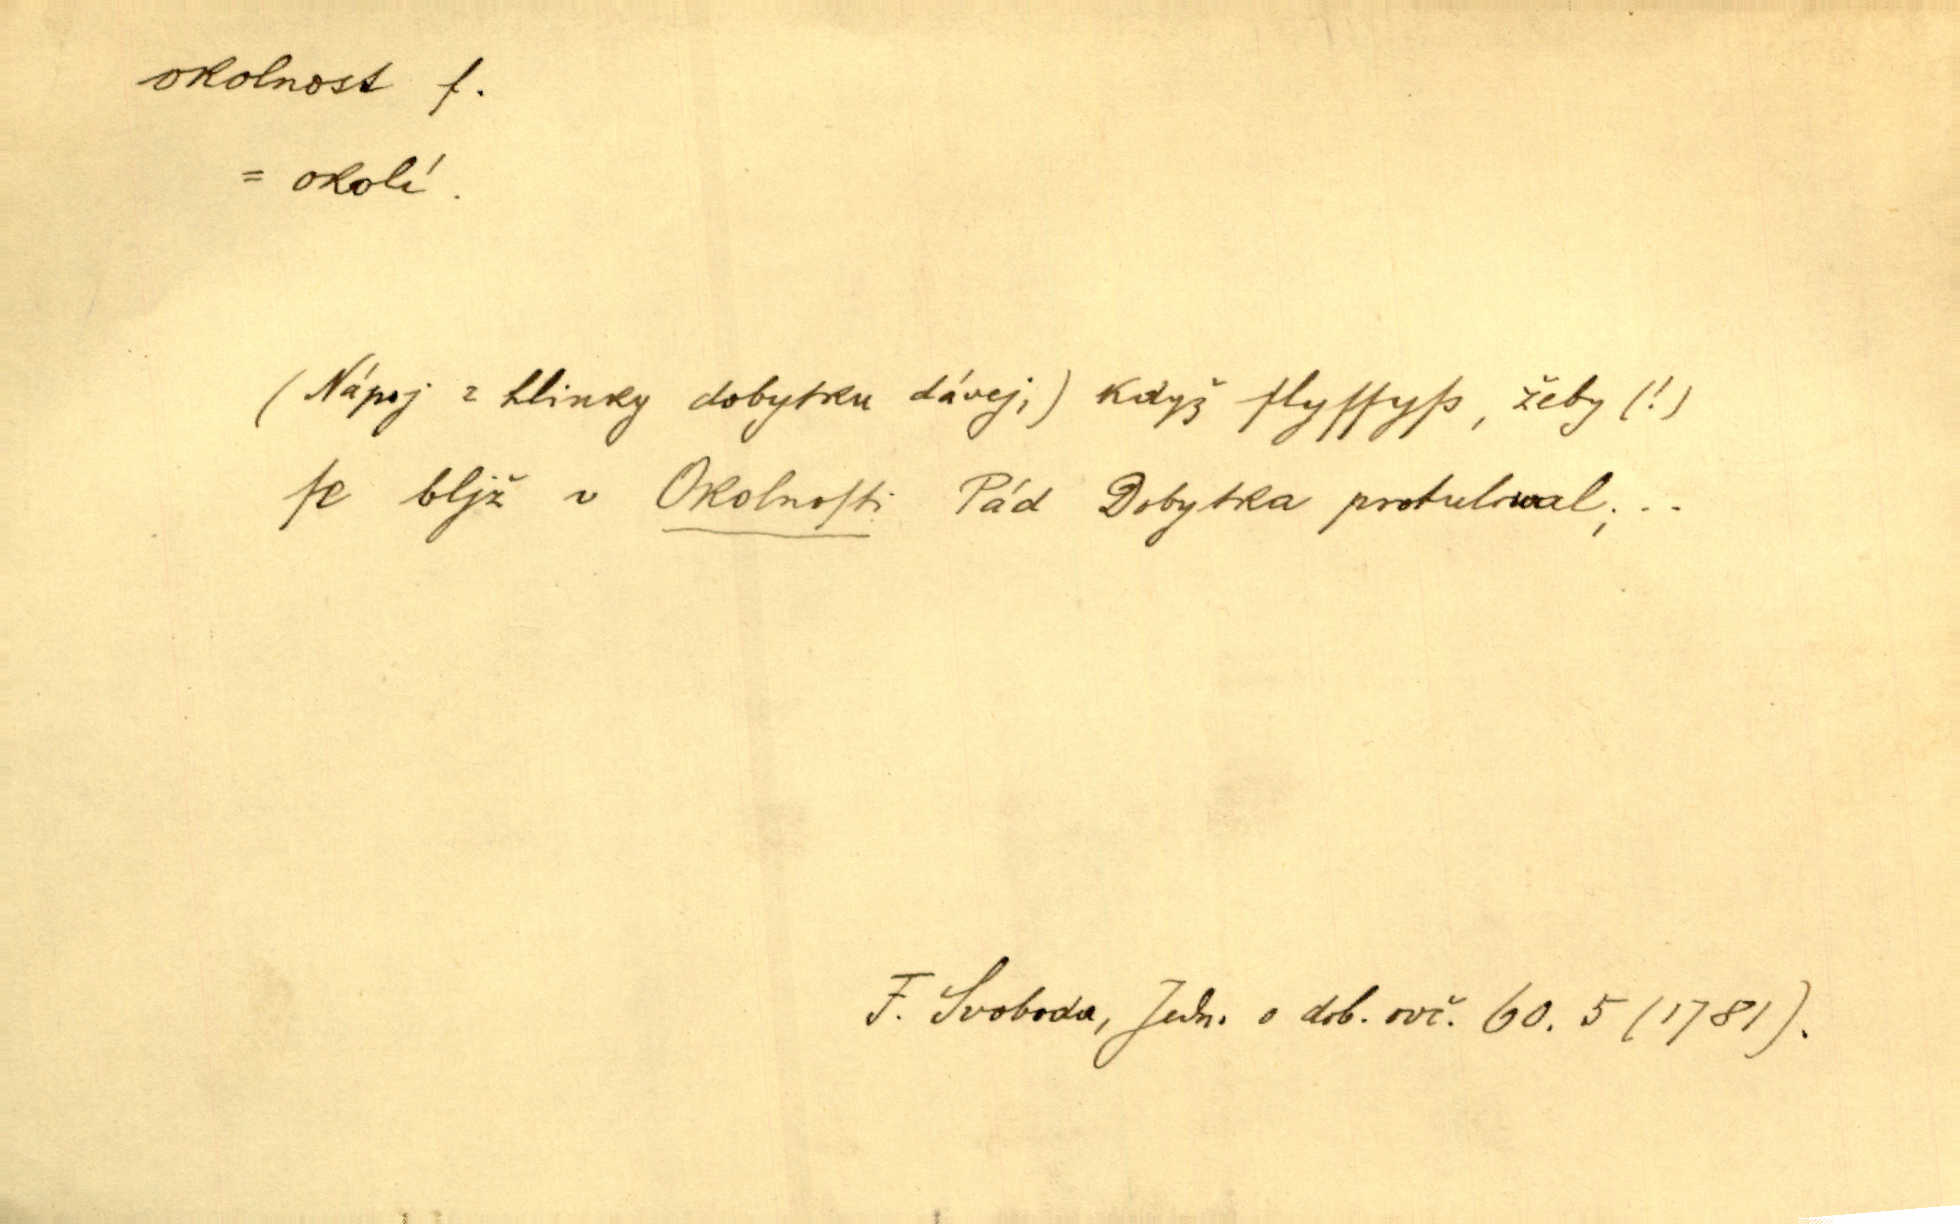 okolnost f.
= okolí.
(Nápoj z hlinky dobytku dávej,) když ſlyſſyſs, žeby (!)
ſe bljž v Okolnoſti Pád Dobytka protulowal; ..
F. Svoboda, Jedn. o dob. ovč. 60. 5 (1781).